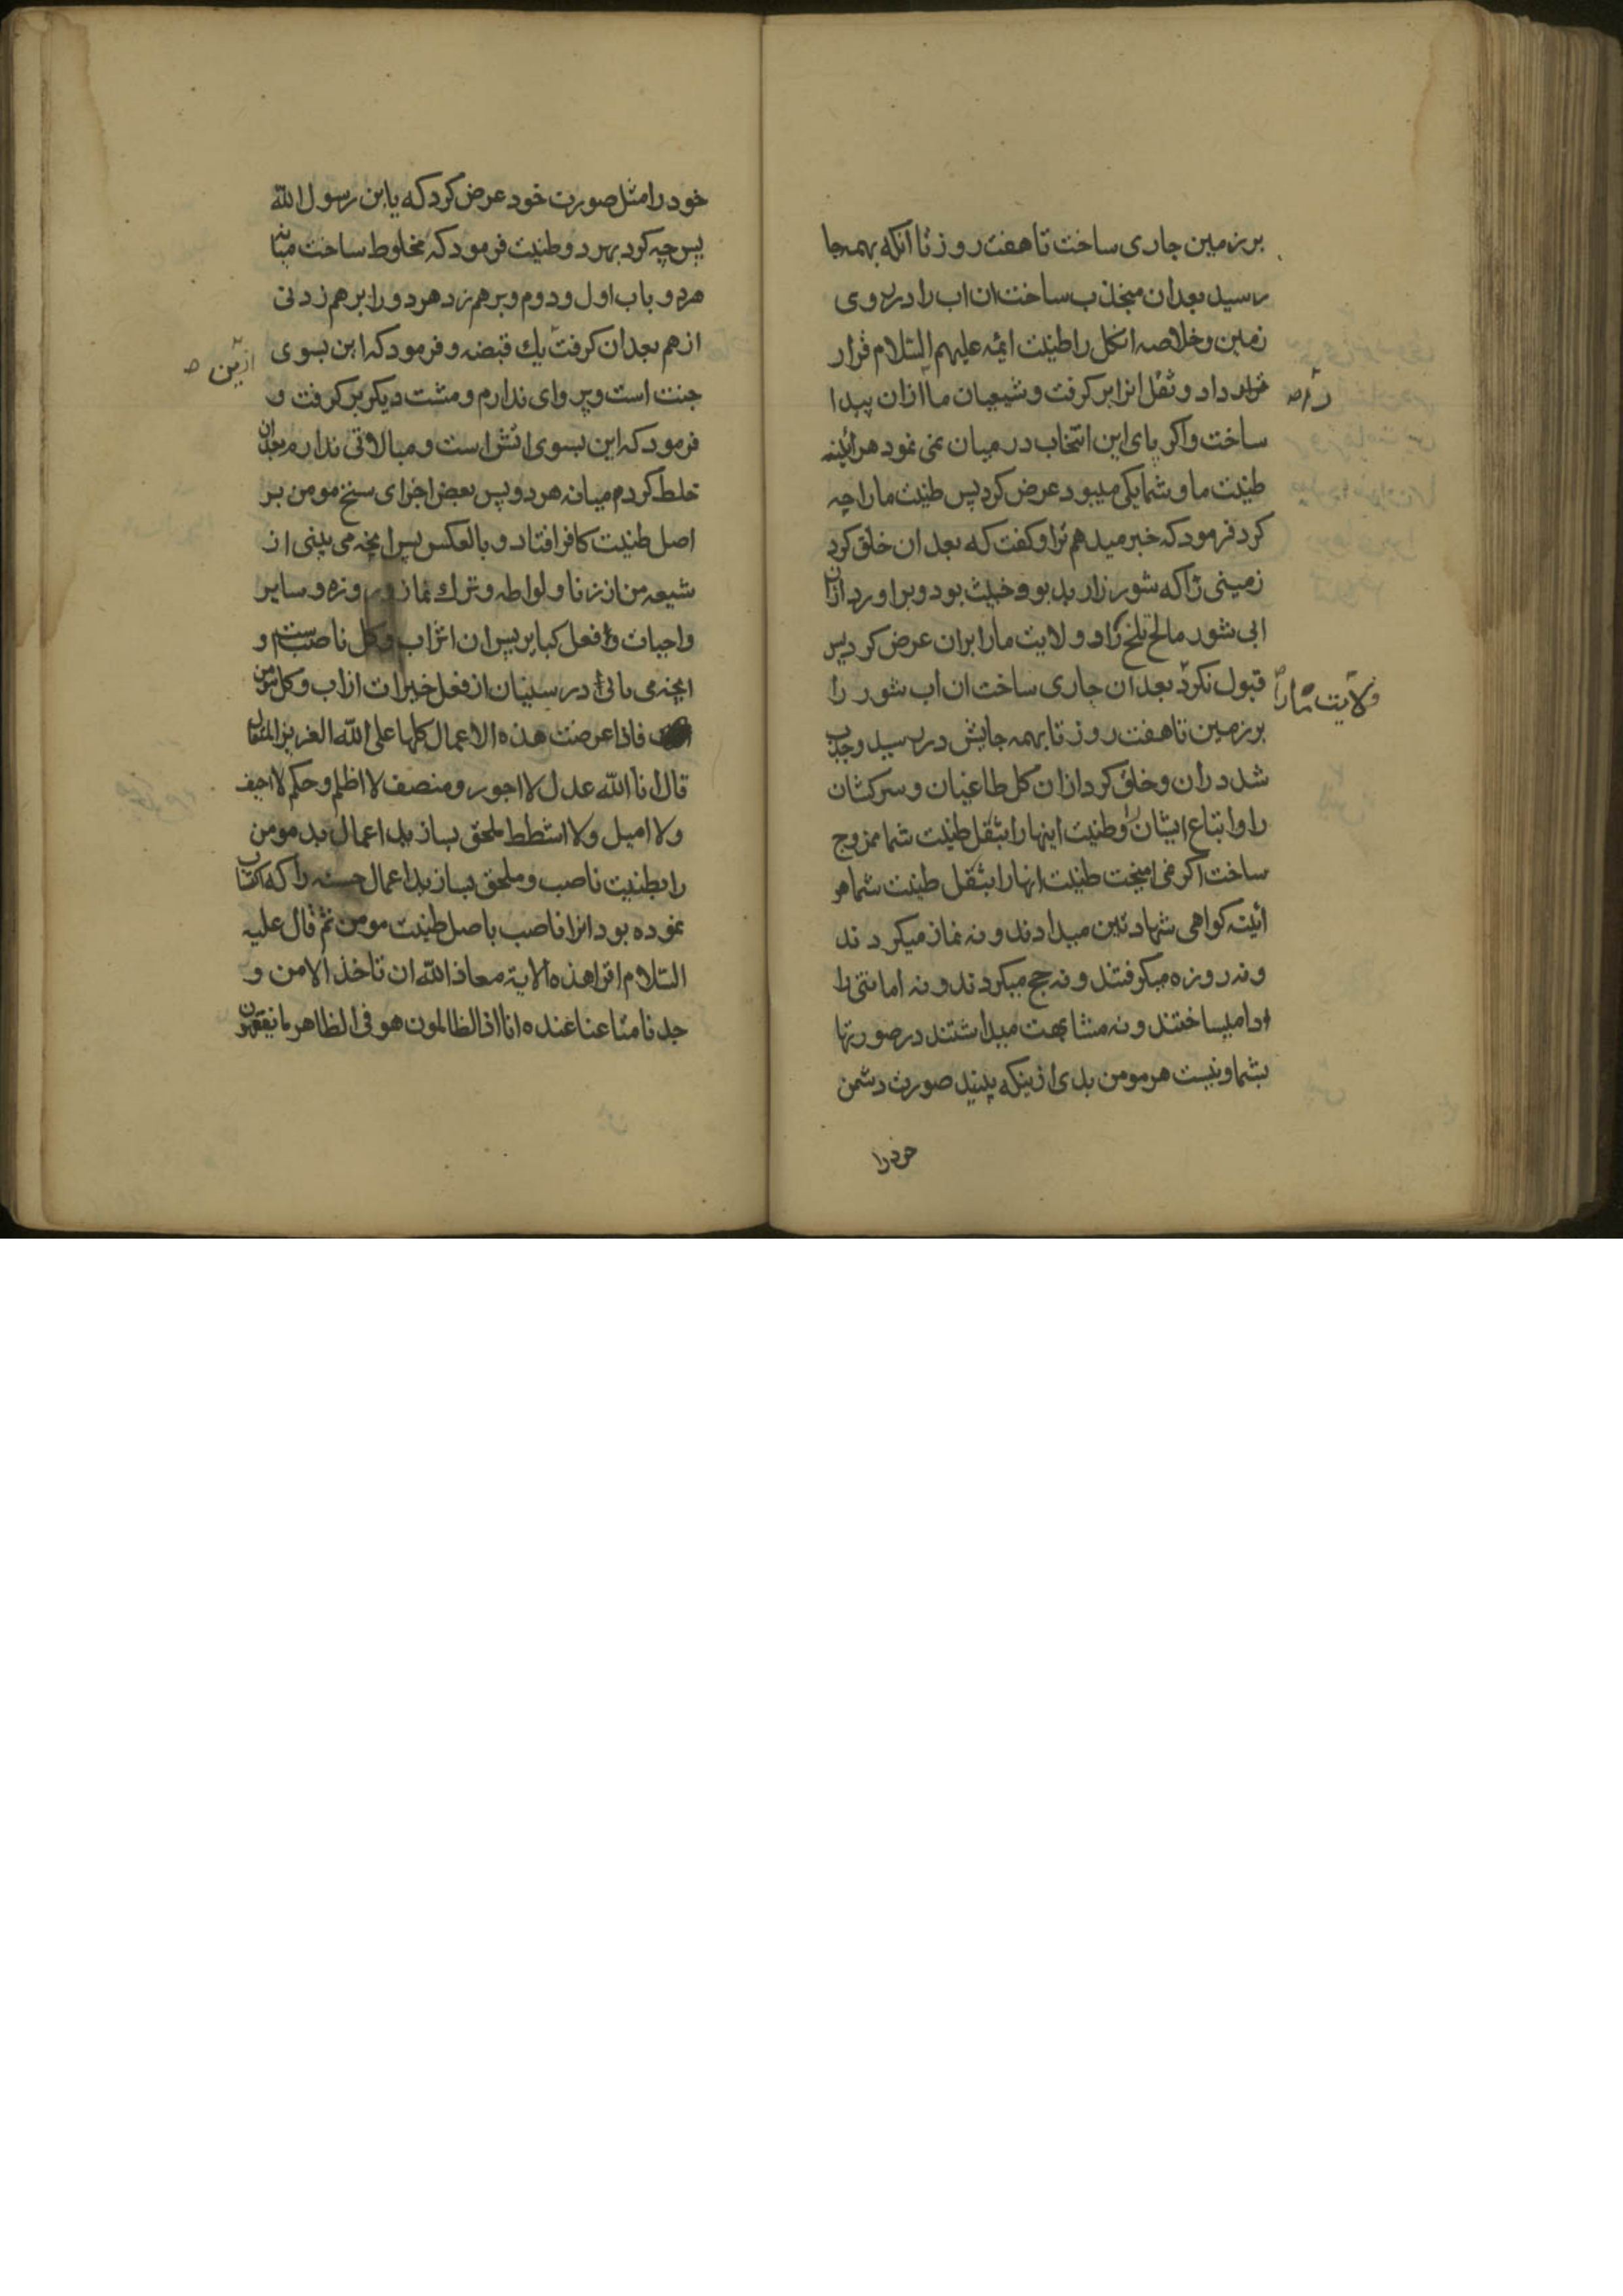 بر زمین جاری ساخت تا هفت روز تا آنکه بهمه جا
رسید بعد ان منجذب ساخت ان اب را در روی
زمین و خلاصه انکل را طینت ائمه علیهم السلام قرار
قرار داد و ثفل انرا بر کرفت و شیعیان ما را ازان پیدا
را صه
ساخت و اکر پای این انتخاب در میان نمی نمود هر آئینه
طینت ما و شما یکی میبود عرض کرد پس طینت ما را چه
کرد فرمود که خبر میدهم ترا و کفت که بعد ان خلق کرد
زمینی را که شور زار بد بو و خبیث بود و بر اورد ازان
ابی شور مالح تلخ را و ولایت ما را بران عرض کرد پس
قبول نکرد بعد ان جاری ساخت ان اب شور را
ولایت ما را
بر زمین تا هفت روز تا بهمه جایش در رسید و جذب
شد دران و خلق کرد ازان کل طاغیان و سرکشان
را و اتباع ایشان را و طینت اینها را بثفل طینت شما ممزوج
ساخت اکر نمی امیخت طینت انها را بثفل طینت شما هر
ائینه کواهی شهادتین میدادند و نه نماز میکردند
و نه روزه میکرفتند و نه حج میکردند و نه امانتی را
ادا میساختند و نه مشابهت میداشتند در صورتها
بشما و نیست هر مومن بدی ازینکه ببیند صورت دشمن
خود را
خود را مثل صورت خود عرض کرد که یابن رسول الله
پس چه کرد بهر دو طینت فرمود که مخلوط ساخت میانه
هر دو باب اول و دوم و بر هم زد هر دو را بر هم زدنی
از هم بعد ان کرفت یك قبضه و فرمود که این بسوی
ازین صه
جنت است و پروای ندارم و مشت دیکر بر کرفت و
فرمود که این بسوی اتش است و مبالاتی ندارم بعد ان
خلط کردم میانه هر دو پس بعض اجزای سنخ مومن بر
اصل طینت کافر افتاد و بالعکس پس انچه می بینی از
شیعه من از زنا و لواطه و ترك نماز و روزه و سایر
واجبات و فعل کبایر پس ان اثراب و کل ناصب است و
انچه می یابی در سنیان از فعل خیرات از اب و کل مومن
فاذا عرضت هذه الاعمال کلها علی الله العزیز المتعال
قال انا الله عدل لا اجور و منصف لا اظلم و حکم لا احیف
و لا امیل و لا اشطط ملحق بسازید اعمال بد مومن
را بطینت ناصب و ملحق بسازید اعمال حسنه را که اکتساب
نموده بود انرا ناصب باصل طینت مومن ثم قال علیه
السلام اقرا هذه الایة معاذ الله ان ناخذ الا من و
جدنا متاعنا عنده انا اذا لظالمون هو فی الظاهر ما تفقهون